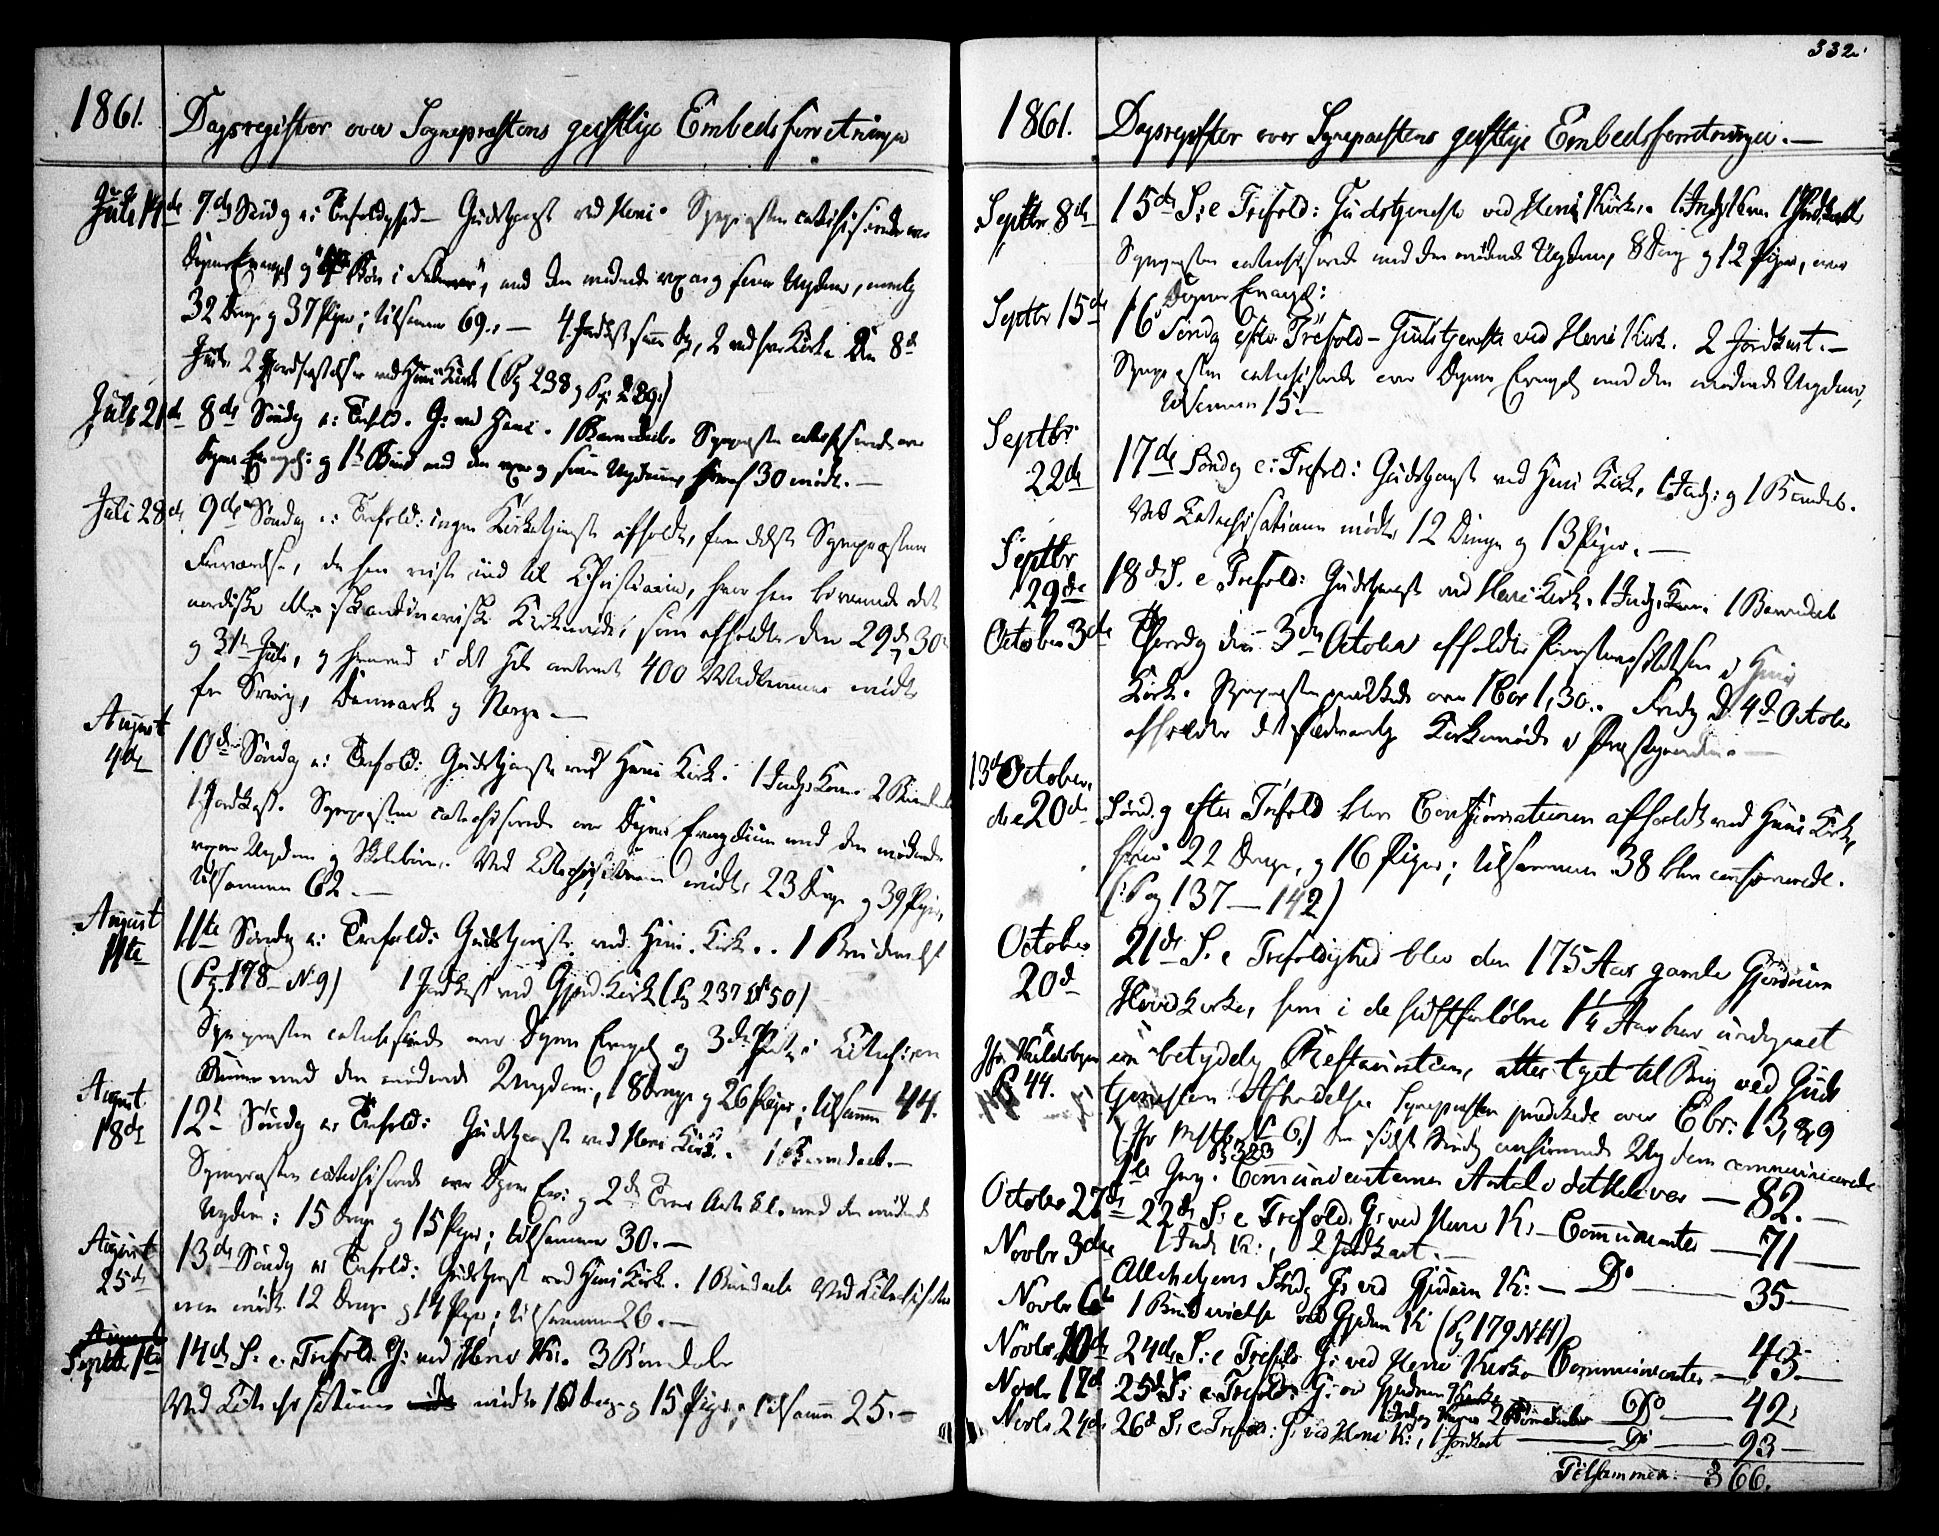 1861. Dagsregister over Sognepræstens geistlige Embedsforretninger
Juli 14de 7de Søndag e: Trefoldighed – Gudstjenst ved Heni. Sognepræsten catechiserede over
Dagens Evangel og i Fadervor, med den mødende Ungdom, nemlig
32 Drenge og 37 Piger; tilsammen 69. – 2 ved Kirke. Den 8de
Juli 2 Jordfæstelser ved Heni Kirke (Pag 238 og Pag: 239.)
Juli 21de 8de Søndag e: Trefold. G: ved Heni. 1 Barnedaab. Sognepræsten catechiserede over
Dagens Evangel: og 1ste Bud med den Ungdom, hvoraf 30 mødte. –
Juli 28de 9de Søndag e: Trefold: ingen Kirketjeneste afholdt, formedelst Sognepræstens
Fraværelse, da han reiste ind til Christiania, hvor han bivaanede det
nordiske eller skandinaviske Kirkemøde, som afholdtes den 29de, 30te
og 31te Juli, og hvorved i det Hele omtrent 400 Vedkommende mødte
fra Sverig, Danmark og Norge. –
August 4de 10de Søndag e: Trefold: Gudstjenst ved Heni Kirke. 1 Indg: Kone 2 Barnedaab
1 Jordkast. Sognepræsten catechiserede over Dagens Evangelium med den mødende
Ungdom og Skolebørn. Ved Catechisationen mødte 23 Drenge og 39 Piger,
tilsammen 62. –
August 11te 11te Søndag e: Trefold: Gudstjenst ved Heni Kirke. 1 Brudevielse
(Pag. 178 N 9) 1 Jordkast ved Gjerd. Kirke (Pag 237 N 50)
Sognepræsten catechiserede over Dagens Evangel og 3de Part i Catechismen
med den mødende Ungdom, 18 Drenge og 26 Piger; tilsammen 44.
August 18de 12te Søndag e: Trefold: Gudstjenst ved Heni Kirke. 1 Barnedaab. –
Sognepræsten catechiserede over Dagens Ev: og 2de Troes Artikel med den mødende
Ungdom: 15 Drenge og 15 Piger; tilsammen 30. –
August 25de 13de Søndag e: Trefold: Gudstjenst ved Heni Kirke. 1 Barnedaab Ved Catechisation
mødte 12 Drenge og 14 Piger; tilsammen 26. –
Septbr 1ste 14de S: e: Trefold. G: ved Heni K:. 3 Barnedaab
Ved Catechisationen mødte 10 Drenge og 15 Piger; tilsammen 25. –
332.
1861. Dagsregister over Sognepræstens geistlige Embedsforretninger. –
Septbr 8de 15de S: e Trefold: Gudstjeneste ved Heni Kirke. 1 Indg: Kone 1 Jordkast
Sognepræsten catechiserede med den mødende Ungdom, 8 Dreng og 12 Piger, over
Dagens Evangel:
Septbr 15de 16de Søndag efter Trefold – Gudstjeneste ved Heni Kirke. 2 Jordkast. –
Sognepræsten catechiserede over Dagens Evangel med den mødende Ungdom,
tilsammen 15. –
Septbr 22de 17de Søndag e: Trefold: Gudstjenst ved Heni Kirke, 1 Indg: og 1 Barnedaab.
Ved Catechisationen mødte 12 Drenge og 13 Piger. –
Septbr 29de 18de S. e Trefold: Gudstjenst ved Heni Kirke. 1 Indg. Kone 1 Barnedaab
October 3de Thorsdag den 3die October afholdtes i Heni
Kirke. Sognepræsten prædikede over 1 Cor 1,30. Fredag d. 4de October
afholdtes det sædvanlige Kirkemøde i Præstegaarden. –
13de October, die 20de Sønd.g efter Trefold blev Confirmationen afholdt ved Heni Kirke,
22 Drenge, og 16 Piger; tilsammen 38 blev confirmerede.
(Pag 137 – 142)
October 20de 21de S. e Trefoldighed blev den 175 Aar gamle Gjerdrum
Hovedkirke, som i de sidstforløbne 1¼ Aar har undergaaet
Pag 44. en betydelig Restauration, atter taget til Brug ved Guds
tjenesten Afholdelse Sognepræsten prædikede over Ebr: 13, 8, 9
den sidste Søndag confirmerede Ungdom communicerede
1ste Gang. Communicanternes Antal i det Hele var – 82. –
October 27de 22de S: e Trefold. G: ved Heni K: – Communicanter – 71 –
1 Indg K:, 2 Jordkast. –
Novbr 3die Allehelgens Søndag G: ved Gjerdrum K: – Do – 35 –
Novbr 6te 1 Brudevielse ved Gjerdrum K: (Pag 179 N 11)
Novbr 10de 24de S: e Trefold G: ved Heni Kirke Communicanter – 43 –
Novbr 17de 25de S: e Trefold: G: v Gjerdrum Kirke – Do – 42
Novbr 24de 26de S: e Trefold: G: ved Heni K:, 1 Jordkast – Do – 93 –
Tilsammen. 366.